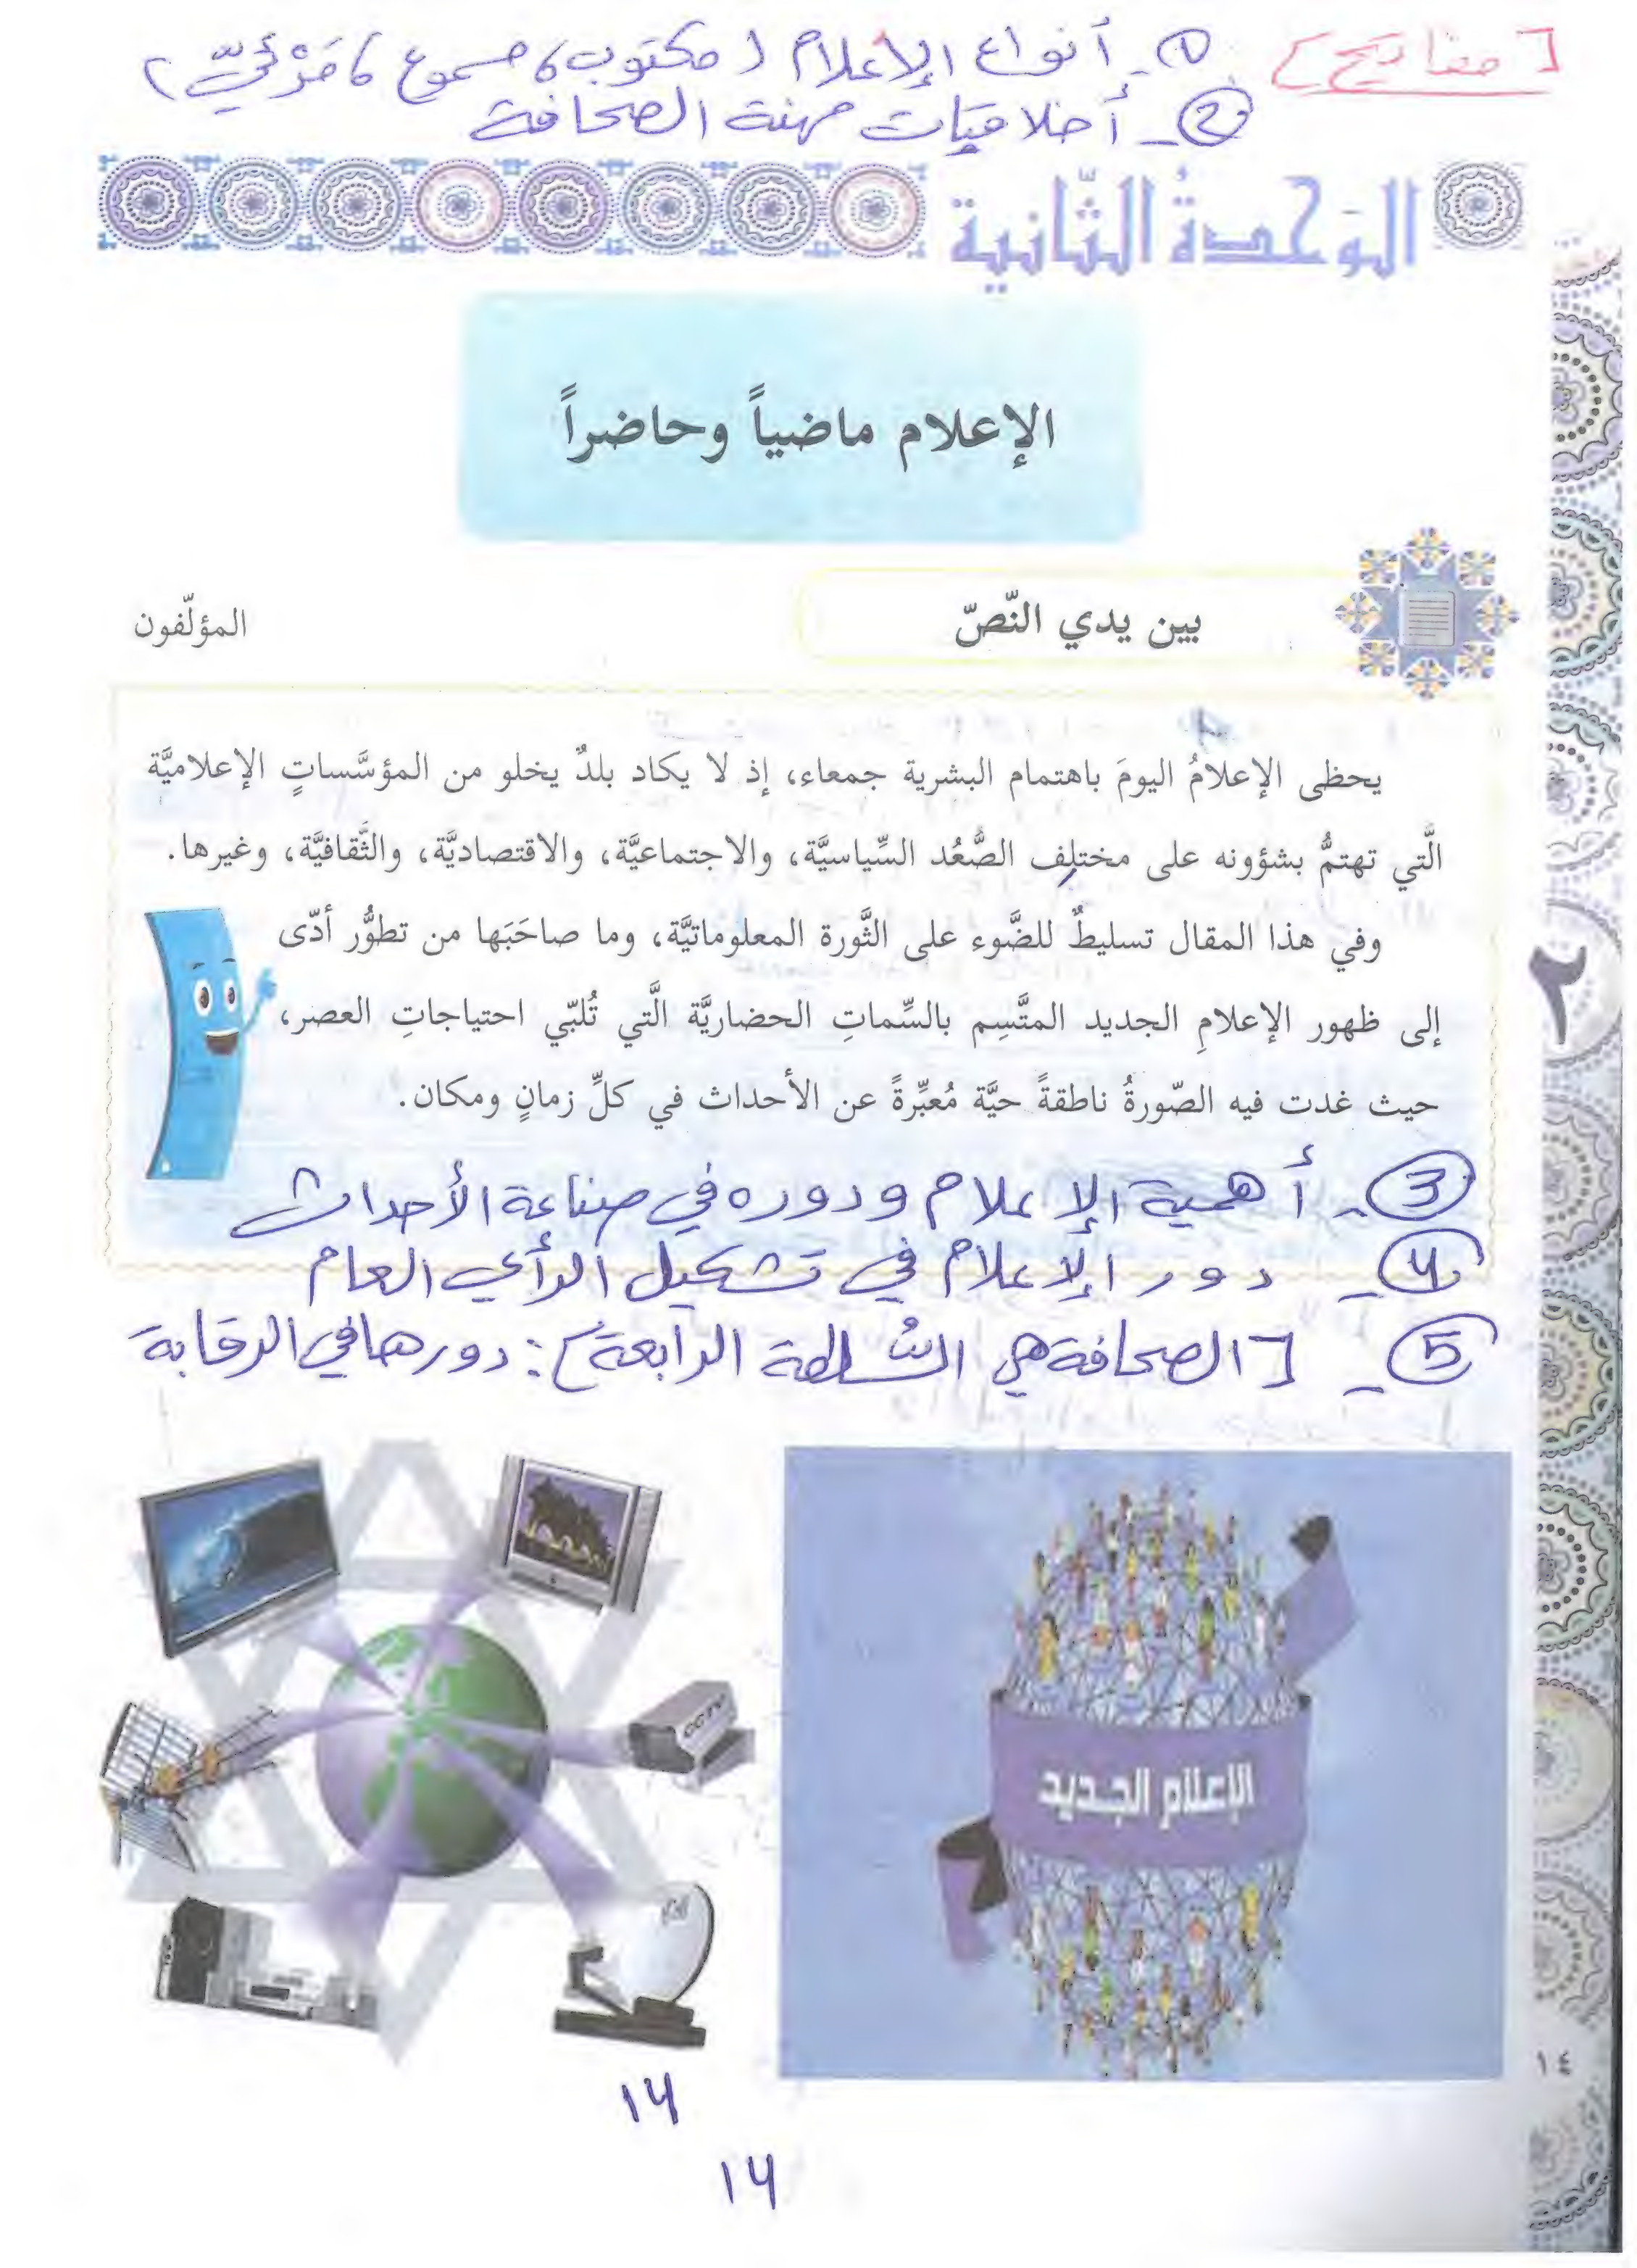 [مفاتيح] ①- أنواع الإعلام (مكتوب، مسموع، مَرْئيّ)
②- أخلاقيَّات مهنة الصحافة
الوَحدةُ الثّانية
الإعلام ماضياً وحاضراً
بين يدي النّصّ
المؤلّفون
يحظى الإعلامُ اليومَ باهتمام البشرية جمعاء، إذ لا يكاد بلدٌ يخلو من المؤسَّساتٍ الإعلاميَّة
الَّتي تهتمُّ بشؤونه على مختلِف الصُّعُد السِّياسيَّة، والاجتماعيَّة، والاقتصاديَّة، والثَّقافيَّة، وغيرها.
وفي هذا المقال تسليطٌ للضَّوء على الثَّورة المعلوماتيَّة، وما صاحَبَها من تطوُّر أدّى
إلى ظهور الإعلامِ الجديد المتَّسِم بالسِّماتِ الحضاريَّة الَّتي تُلبّي احتياجاتِ العصر،
حيث غدت فيه الصّورةُ ناطقةً حيَّة مُعبِّرةً عن الأحداث في كلِّ زمانٍ ومكان.
③- أهمية الإعلام ودوره في صناعة الأحداث
④- دور الإعلام في تشكيل الرأي العام
⑤- [الصحافة هي السُلطة الرابعة]: دورها في الرقابة
CCTV
الإعلام الجديد
٢
١٤
14
14